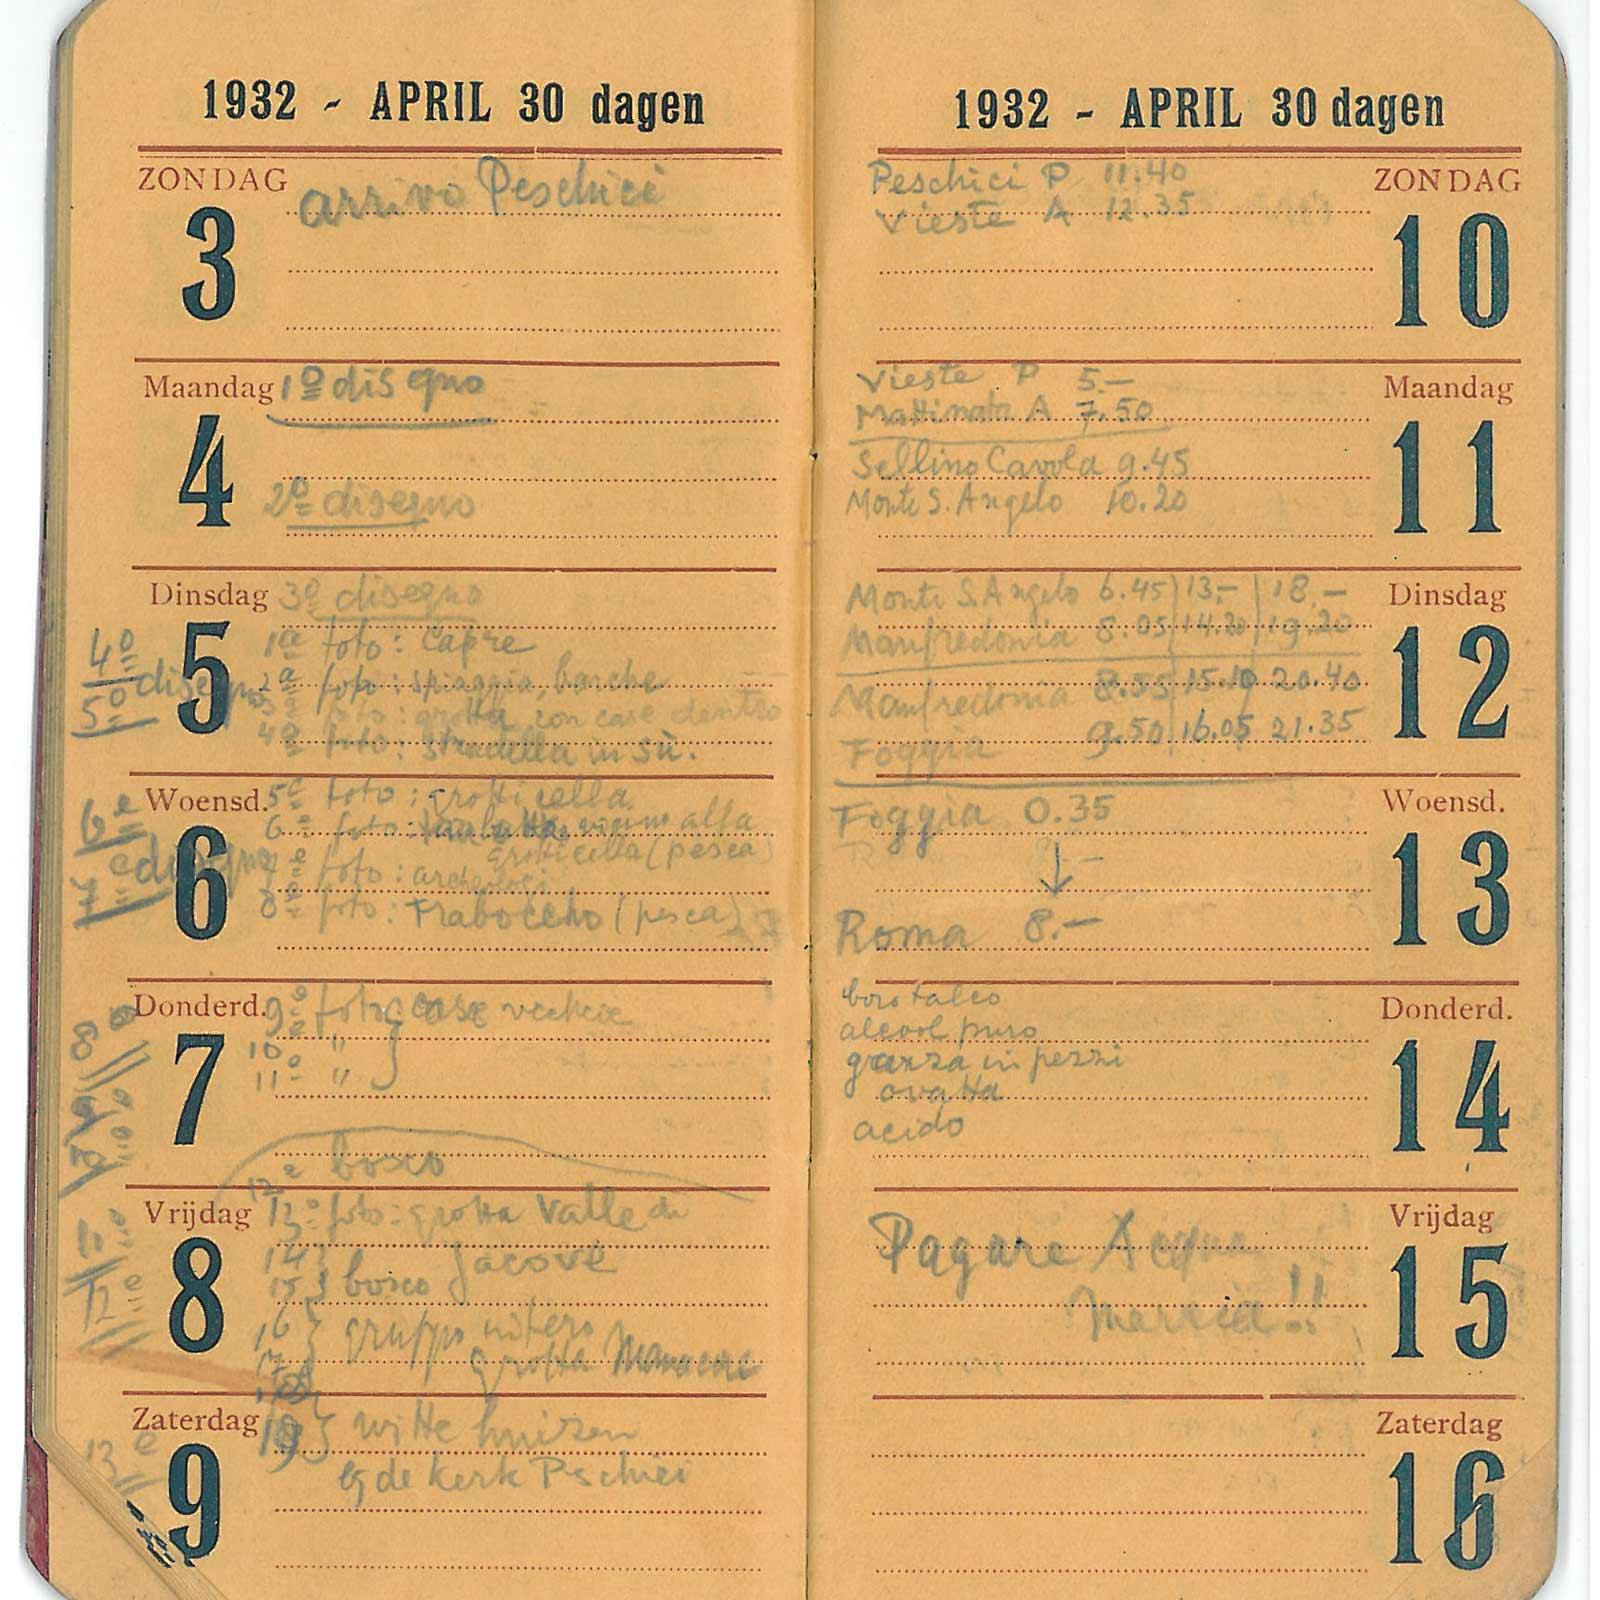 1932 - APRIL 30 dagen
ZONDAG
3
arrivo Peschici
Maandag
4
1º disegno
2º disegno
Dinsdag
5
3º disegno
4º
5º disegno
1ª foto: capre
2ª foto: spiaggia, barche
3ª foto: grotta con case dentro
4ª foto: stradella in sù.
Woensd.
6
6e
7e disegno
5e foto: grotticella
6e foto: vicino alla
grotticella (pesca)
7e foto: archeologi
8e foto: Trabocco (pesca)
Donderd.
7
9e foto case vecchie
10e "
11e "
12e bosco
Vrijdag
8
11e
12e
13e foto: grotta Valle di
Jacove
14
15 } bosco
16
17 } gruppo intero
grotta Manacore
18
Zaterdag
9
13e
19 } witte huizen
bij de kerk Peschici
1932 - APRIL 30 dagen
ZONDAG
10
Peschici P 11.40
Vieste A 12.35
Maandag
11
Vieste P 5.-
Mattinata A 7.50
Sellino Cavola 9.45
Monte S. Angelo 10.20
Dinsdag
12
Monte S. Angelo 6.45 | 13.- | 18.-
Manfredonia 8.05 | 14.20 | 19.20
Manfredonia 8.55 | 15.10 20.40
Foggia 9.50 | 16.05 21.35
Woensd.
13
Foggia 0.35
↓
Roma 8.-
Donderd.
14
borotalco
alcool puro
garza in pezzi
ovatta
acido
Vrijdag
15
Pagare Acqua
marcia!!
Zaterdag
16